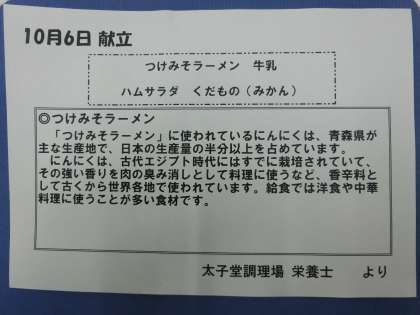 10月6日 献立
つけみそラーメン　牛乳
ハムサラダ　くだもの（みかん）
◎つけみそラーメン
「つけみそラーメン」に使われているにんにくは、青森県が
主な生産地で、日本の生産量の半分以上を占めています。
にんにくは、古代エジプト時代にはすでに栽培されていて、
その強い香りを肉の臭み消しとして料理に使うなど、香辛料と
して古くから世界各地で使われています。給食では洋食や中華
料理に使うことが多い食材です。
太子堂調理場 栄養士　　より